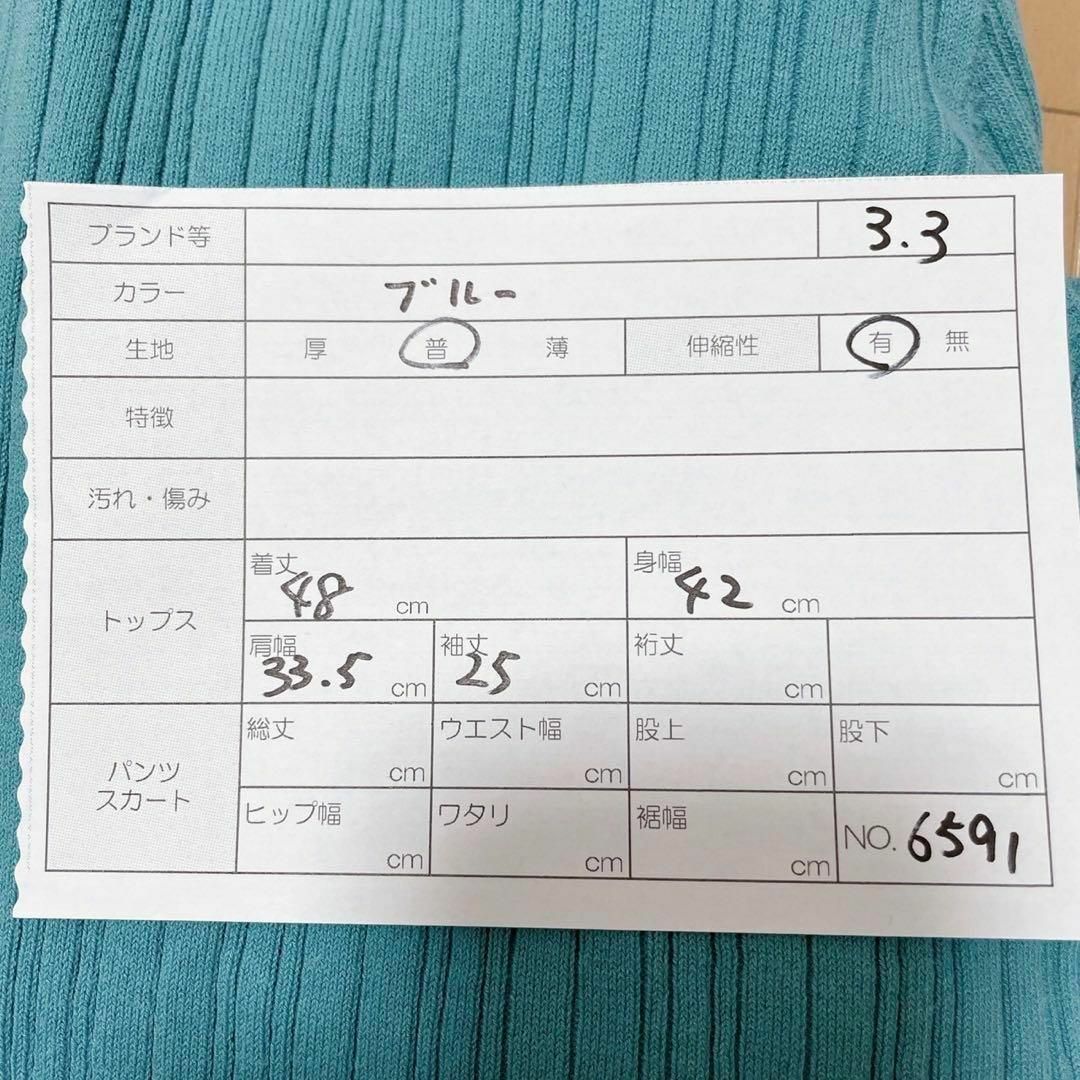 ブランド等 3.3
カラー ブルー
生地 厚 普 薄 伸縮性 有 無
特徴
汚れ・傷み
トップス
着丈 48 cm 身幅 42 cm
肩幅 33.5 cm 袖丈 25 cm 裄丈 cm
パンツ
スカート
総丈 cm ウエスト幅 cm 股上 cm 股下 cm
ヒップ幅 cm ワタリ cm 裾幅 cm NO. 6591